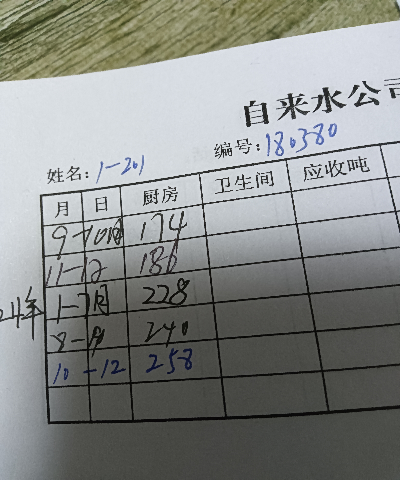 自来水公司
姓名: 1-201 编号: 180380
月 日 厨房 卫生间 应收吨
9-10月 174
11-12 186
24年 1-7月 228
8-9 240
10-12 258